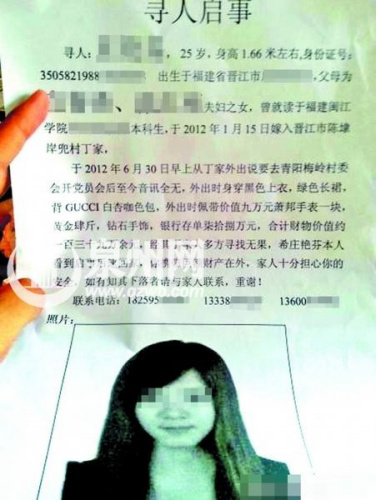 寻人启事
寻人：，25岁，身高1.66米左右,身份证号:
3505821988 出生于福建省晋江市 ,父母为
夫妇之女，曾就读于福建闽江
学院 本科生，于2012年1月15日嫁入晋江市陈埭
岸兜村丁家，
于2012年6月30日早上从丁家外出说要去青阳梅岭村委
会开党员会后至今音讯全无，外出时身穿黑色上衣，绿色长裙，
背GUCCI白杏咖色包，外出时佩带价值九万元萧邦手表一块，
黄金肆斤，钻石手饰，银行存单柒拾捌万元，合计财物价值约
一百三十九万余 多方寻找无果，希庄艳芬本人
看到 财产在外，家人十分担心你的
如有知其下落者请与家人联系，重谢！
联系电话：18595 13338 13600
照片: